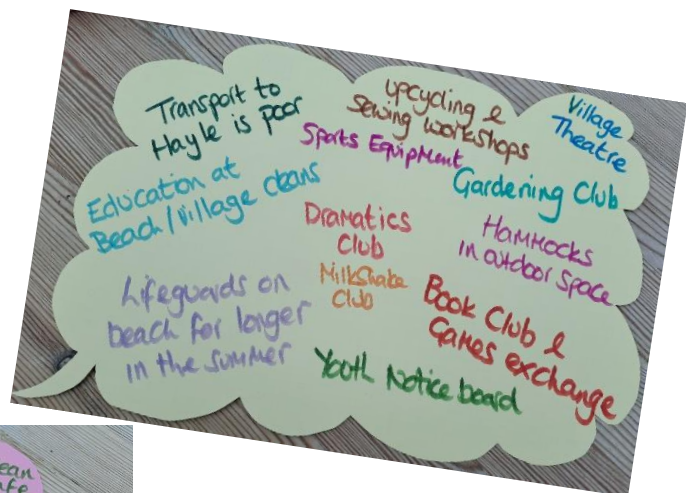 Transport to
Hayle is poor
Upcycling &
Sewing workshops
Village
Theatre
Sports Equipment
Education at
Beach/Village cleans
Gardening Club
Dramatics
Club
Hammocks
in outdoor space
Milkshake
Club
Lifeguards on
beach for longer
in the summer
Book Club &
Games exchange
Youth Notice board